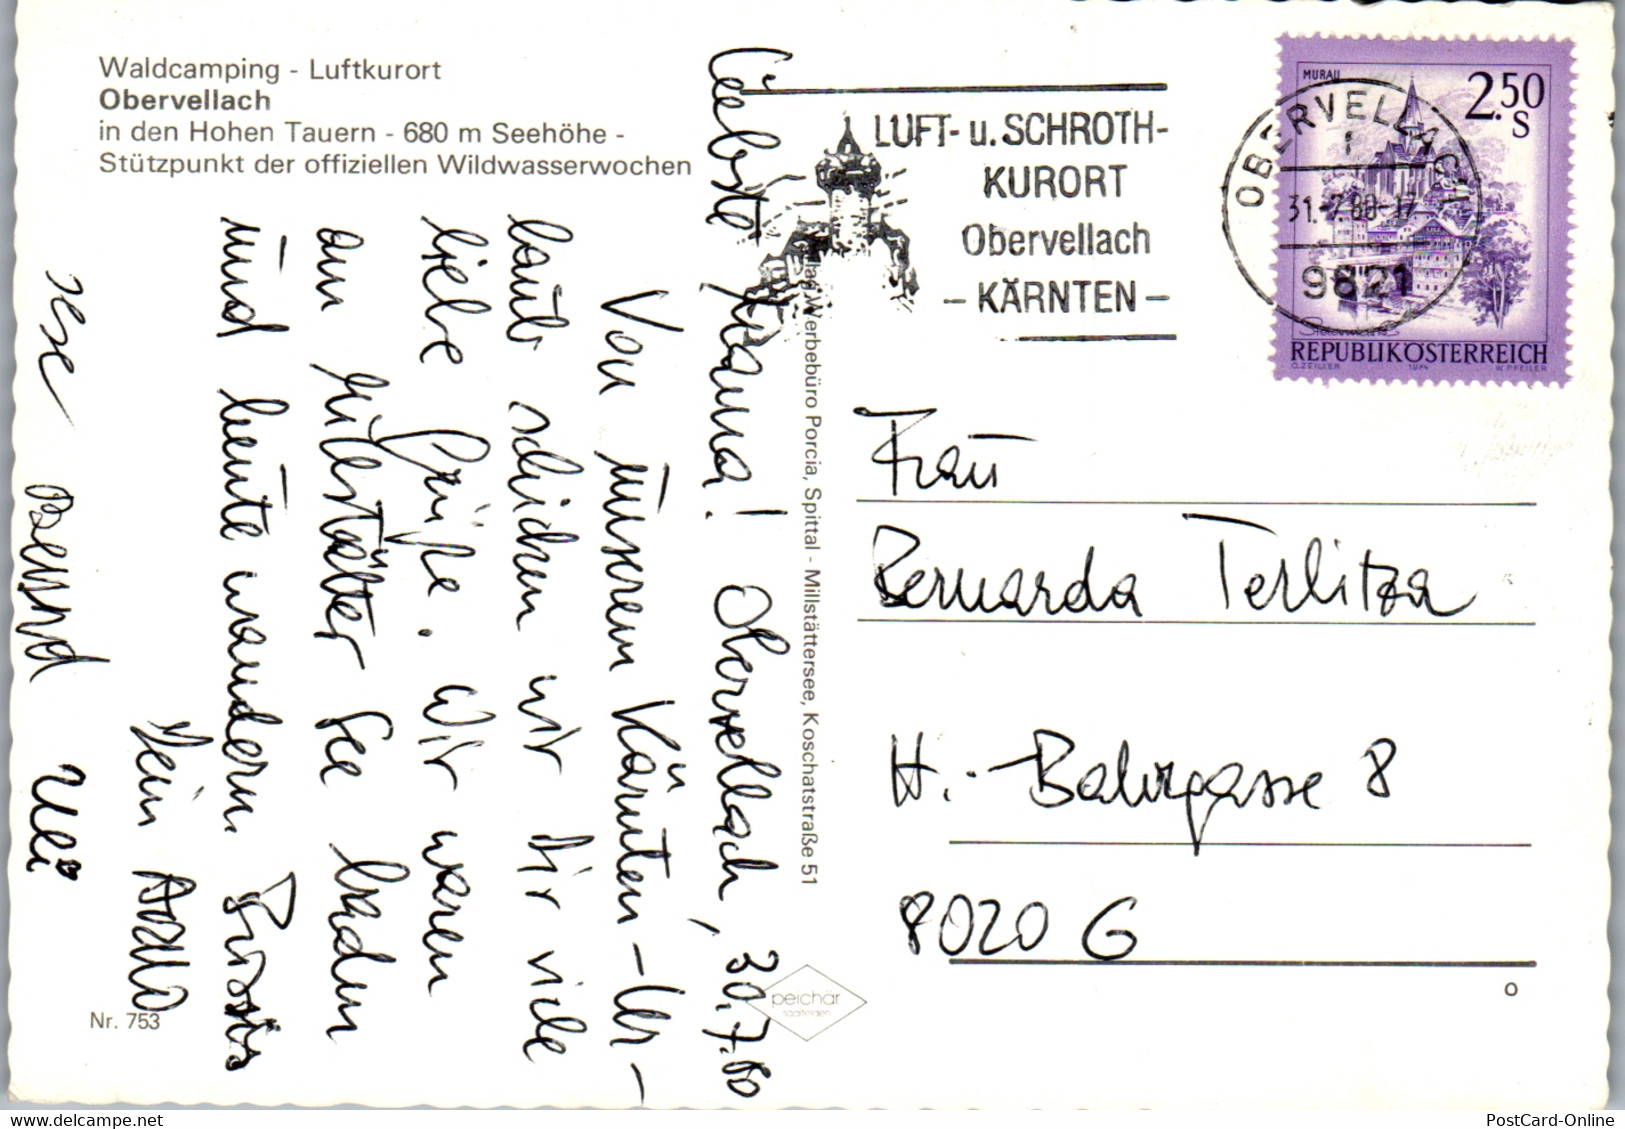 Waldcamping - Luftkurort
Obervellach
in den Hohen Tauern - 680 m Seehöhe -
Stützpunkt der offiziellen Wildwasserwochen
Liebste Mama! Obervellach, 30.7.80
Von unserem Kärnten-Ur-
laub schicken wir Dir viele
liebe Grüße. Wir waren
am Millstätter See baden
und heute wandern. Bussis
Dein
Ilse Bernd Uli
Nr. 753
Verlag Werbebüro Porcia, Spittal - Millstättersee, Koschatstraße 51
peichär
saalfelden
LUFT- u. SCHROTH-
KURORT
Obervellach
- KÄRNTEN -
OBERVELLACH
31.-7.80-17
9821
MURAU
2.50
S
REPUBLIK ÖSTERREICH
O. ZEILER 1974 W. PFEILER
Frau
Bernarda Terlitza
H.-Bahrgasse 8
8020 G
o
PostCard-Online